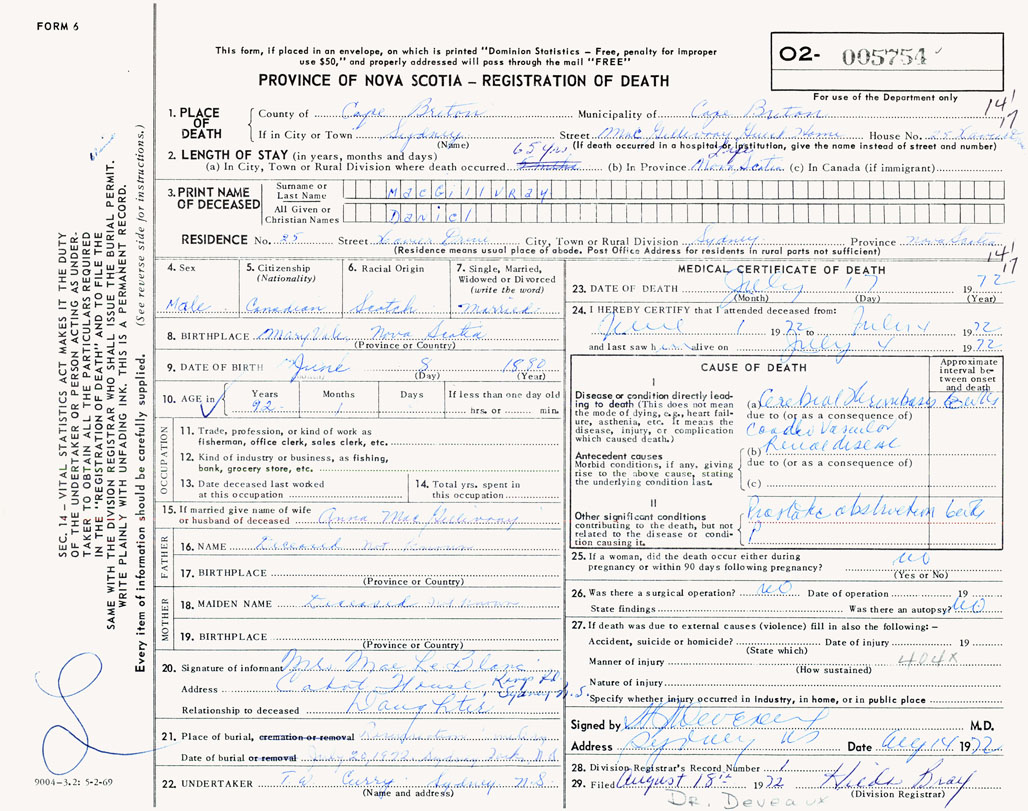 FORM 6
This form, if placed in an envelope, on which is printed "Dominion Statistics – Free, penalty for improper
use $50," and properly addressed will pass through the mail "FREE"
PROVINCE OF NOVA SCOTIA – REGISTRATION OF DEATH
O2- 005754
For use of the Department only
14 1/17
1. PLACE OF DEATH
County of Cape Breton Municipality of Cape Breton
If in City or Town Sydney Street Mac Gillivray Guest Home House No. 25 Xavier
(Name) (If death occurred in a hospital or institution, give the name instead of street and number)
2. LENGTH OF STAY (in years, months and days) 65 Yrs Life
(a) In City, Town or Rural Division where death occurred (b) In Province Nova Scotia (c) In Canada (if immigrant)
3. PRINT NAME OF DECEASED
Surname or Last Name MacGillvray
All Given or Christian Names Daniel
RESIDENCE No. 25 Street Xavier Drive City, Town or Rural Division Sydney Province Nova Scotia
(Residence means usual place of abode. Post Office Address for residents in rural parts not sufficient)
14 1/17
4. Sex Male
5. Citizenship (Nationality) Canadian
6. Racial Origin Scotch
7. Single, Married, Widowed or Divorced (write the word) Married
8. BIRTHPLACE Maryvale Nova Scotia
(Province or Country)
9. DATE OF BIRTH June 8 1880
(Day) (Year)
10. AGE in Years 92 Months 1 Days If less than one day old hrs. or min.
OCCUPATION
11. Trade, profession, or kind of work as
fisherman, office clerk, sales clerk, etc.
12. Kind of industry or business, as fishing,
bank, grocery store, etc.
13. Date deceased last worked
at this occupation
14. Total yrs. spent in
this occupation
15. If married give name of wife
or husband of deceased Anna Mac Gillivray
FATHER
16. NAME Deceased Not Known
17. BIRTHPLACE
(Province or Country)
MOTHER
18. MAIDEN NAME Deceased Not Known
19. BIRTHPLACE
(Province or Country)
20. Signature of informant Mrs. Mae LeBlanc
Address Cabot House Kings Rd. Sydney N.S.
Relationship to deceased Daughter
21. Place of burial, cremation or removal Resurrection
Date of burial or removal July 20, 1972 Sydney N.S.
22. UNDERTAKER T.W. Curry Sydney N.S.
(Name and address)
MEDICAL CERTIFICATE OF DEATH
23. DATE OF DEATH July 17 1972
(Month) (Day) (Year)
24. I HEREBY CERTIFY that I attended deceased from:
June 1 1972 to July 4 1972
and last saw him alive on July 4 1972
CAUSE OF DEATH
Approximate interval between onset and death
I
Disease or condition directly leading to death (This does not mean the mode of dying, e.g., heart failure, asthenia, etc. It means the disease, injury, or complication which caused death.)
(a) Cerebral thrombosis
due to (or as a consequence of)
Cardio Vascular
(b) Renal disease
due to (or as a consequence of)
(c)
Antecedent causes
Morbid conditions, if any, giving rise to the above cause, stating the underlying condition last.
II
Other significant conditions
contributing to the death, but not related to the disease or condition causing it.
Prostate obstruction
25. If a woman, did the death occur either during
pregnancy or within 90 days following pregnancy? NO
(Yes or No)
26. Was there a surgical operation? NO Date of operation 19
State findings Was there an autopsy? NO
27. If death was due to external causes (violence) fill in also the following: –
Accident, suicide or homicide? Date of injury 19
(State which)
Manner of injury 404X
(How sustained)
Nature of injury
Specify whether injury occurred in Industry, in home, or in public place
Signed by M.D.
Address Sydney NS Date Aug 14 1972
28. Division Registrar's Record Number 1
29. Filed August 18th 1972 Hilda Bray
(Division Registrar)
DR. DEVEAUX
SEC. 14 – VITAL STATISTICS ACT MAKES IT THE DUTY
OF THE UNDERTAKER OR PERSON ACTING AS UNDER-
TAKER TO OBTAIN ALL THE PARTICULARS REQUIRED
IN THE "REGISTRATION OF DEATH" AND TO FILE THE
SAME WITH THE DIVISION REGISTRAR WHO SHALL ISSUE THE BURIAL PERMIT.
WRITE PLAINLY WITH UNFADING INK. THIS IS A PERMANENT RECORD.
Every item of information should be carefully supplied. (See reverse side for instructions.)
9004-3.2: 5-2-69